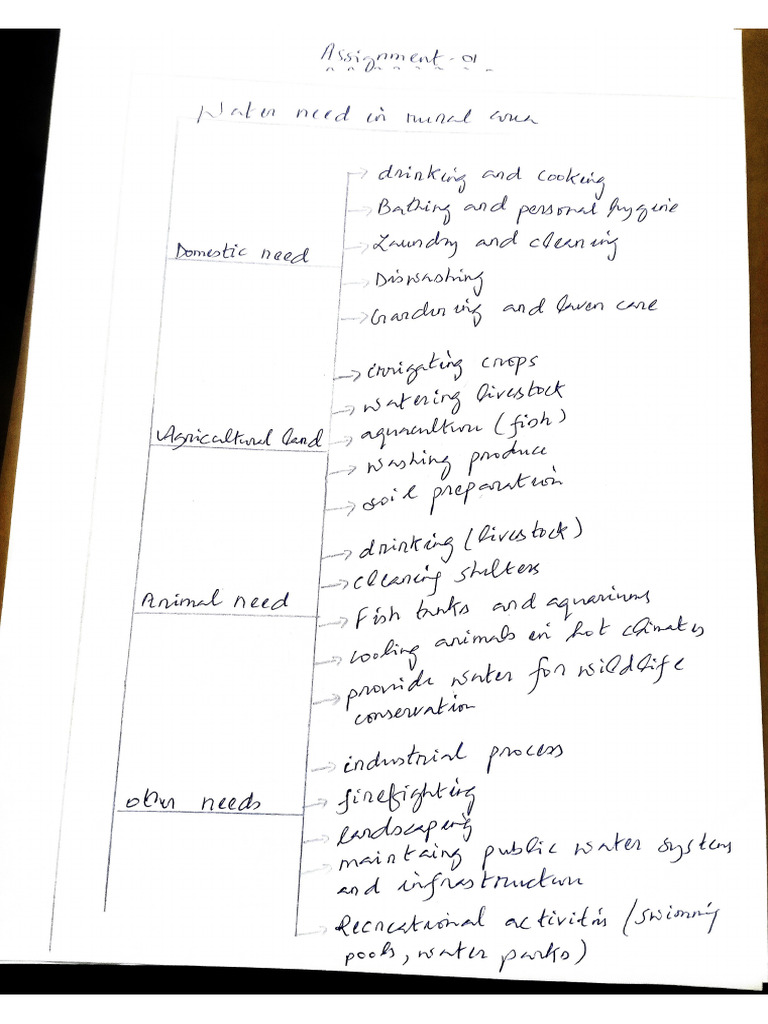 Assignment-01
Water need in rural area
Domestic need
drinking and cooking
Bathing and personal hygine
Laundry and cleaning
Diswashing
Gardening and lawen care
Agricultural land
irrigating crops
watering livestock
aquaculture (fish)
washing produce
soil preparation
Animal need
drinking (livestock)
cleaning shelters
Fish tanks and aquariums
cooling animals in hot climates
provide water for wildlife
conservation
other needs
industrial process
firefighting
landscaping
maintaing public water systems
and infrastructure
Recreational activities (swimming
pools, water parks)